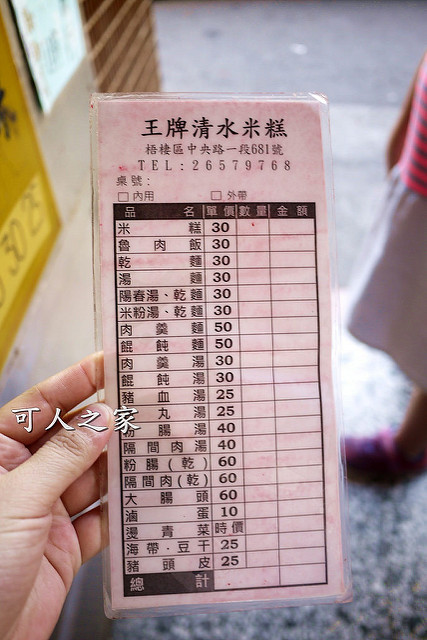 王牌清水米糕
梧棲區中央路一段681號
TEL:26579768
桌號:
□內用 □外帶
品名 單價 數量 金額
米糕 30
魯肉飯 30
乾麵 30
湯麵 30
陽春湯、乾麵 30
米粉湯、乾麵 30
肉羹麵 50
餛飩麵 50
肉羹湯 30
餛飩湯 30
豬血湯 25
丸湯 25
粉腸湯 40
隔間肉湯 40
粉腸(乾) 60
隔間肉(乾) 60
大腸頭 60
滷蛋 10
燙青菜 時價
海帶·豆干 25
豬頭皮 25
總計
可人之家
30